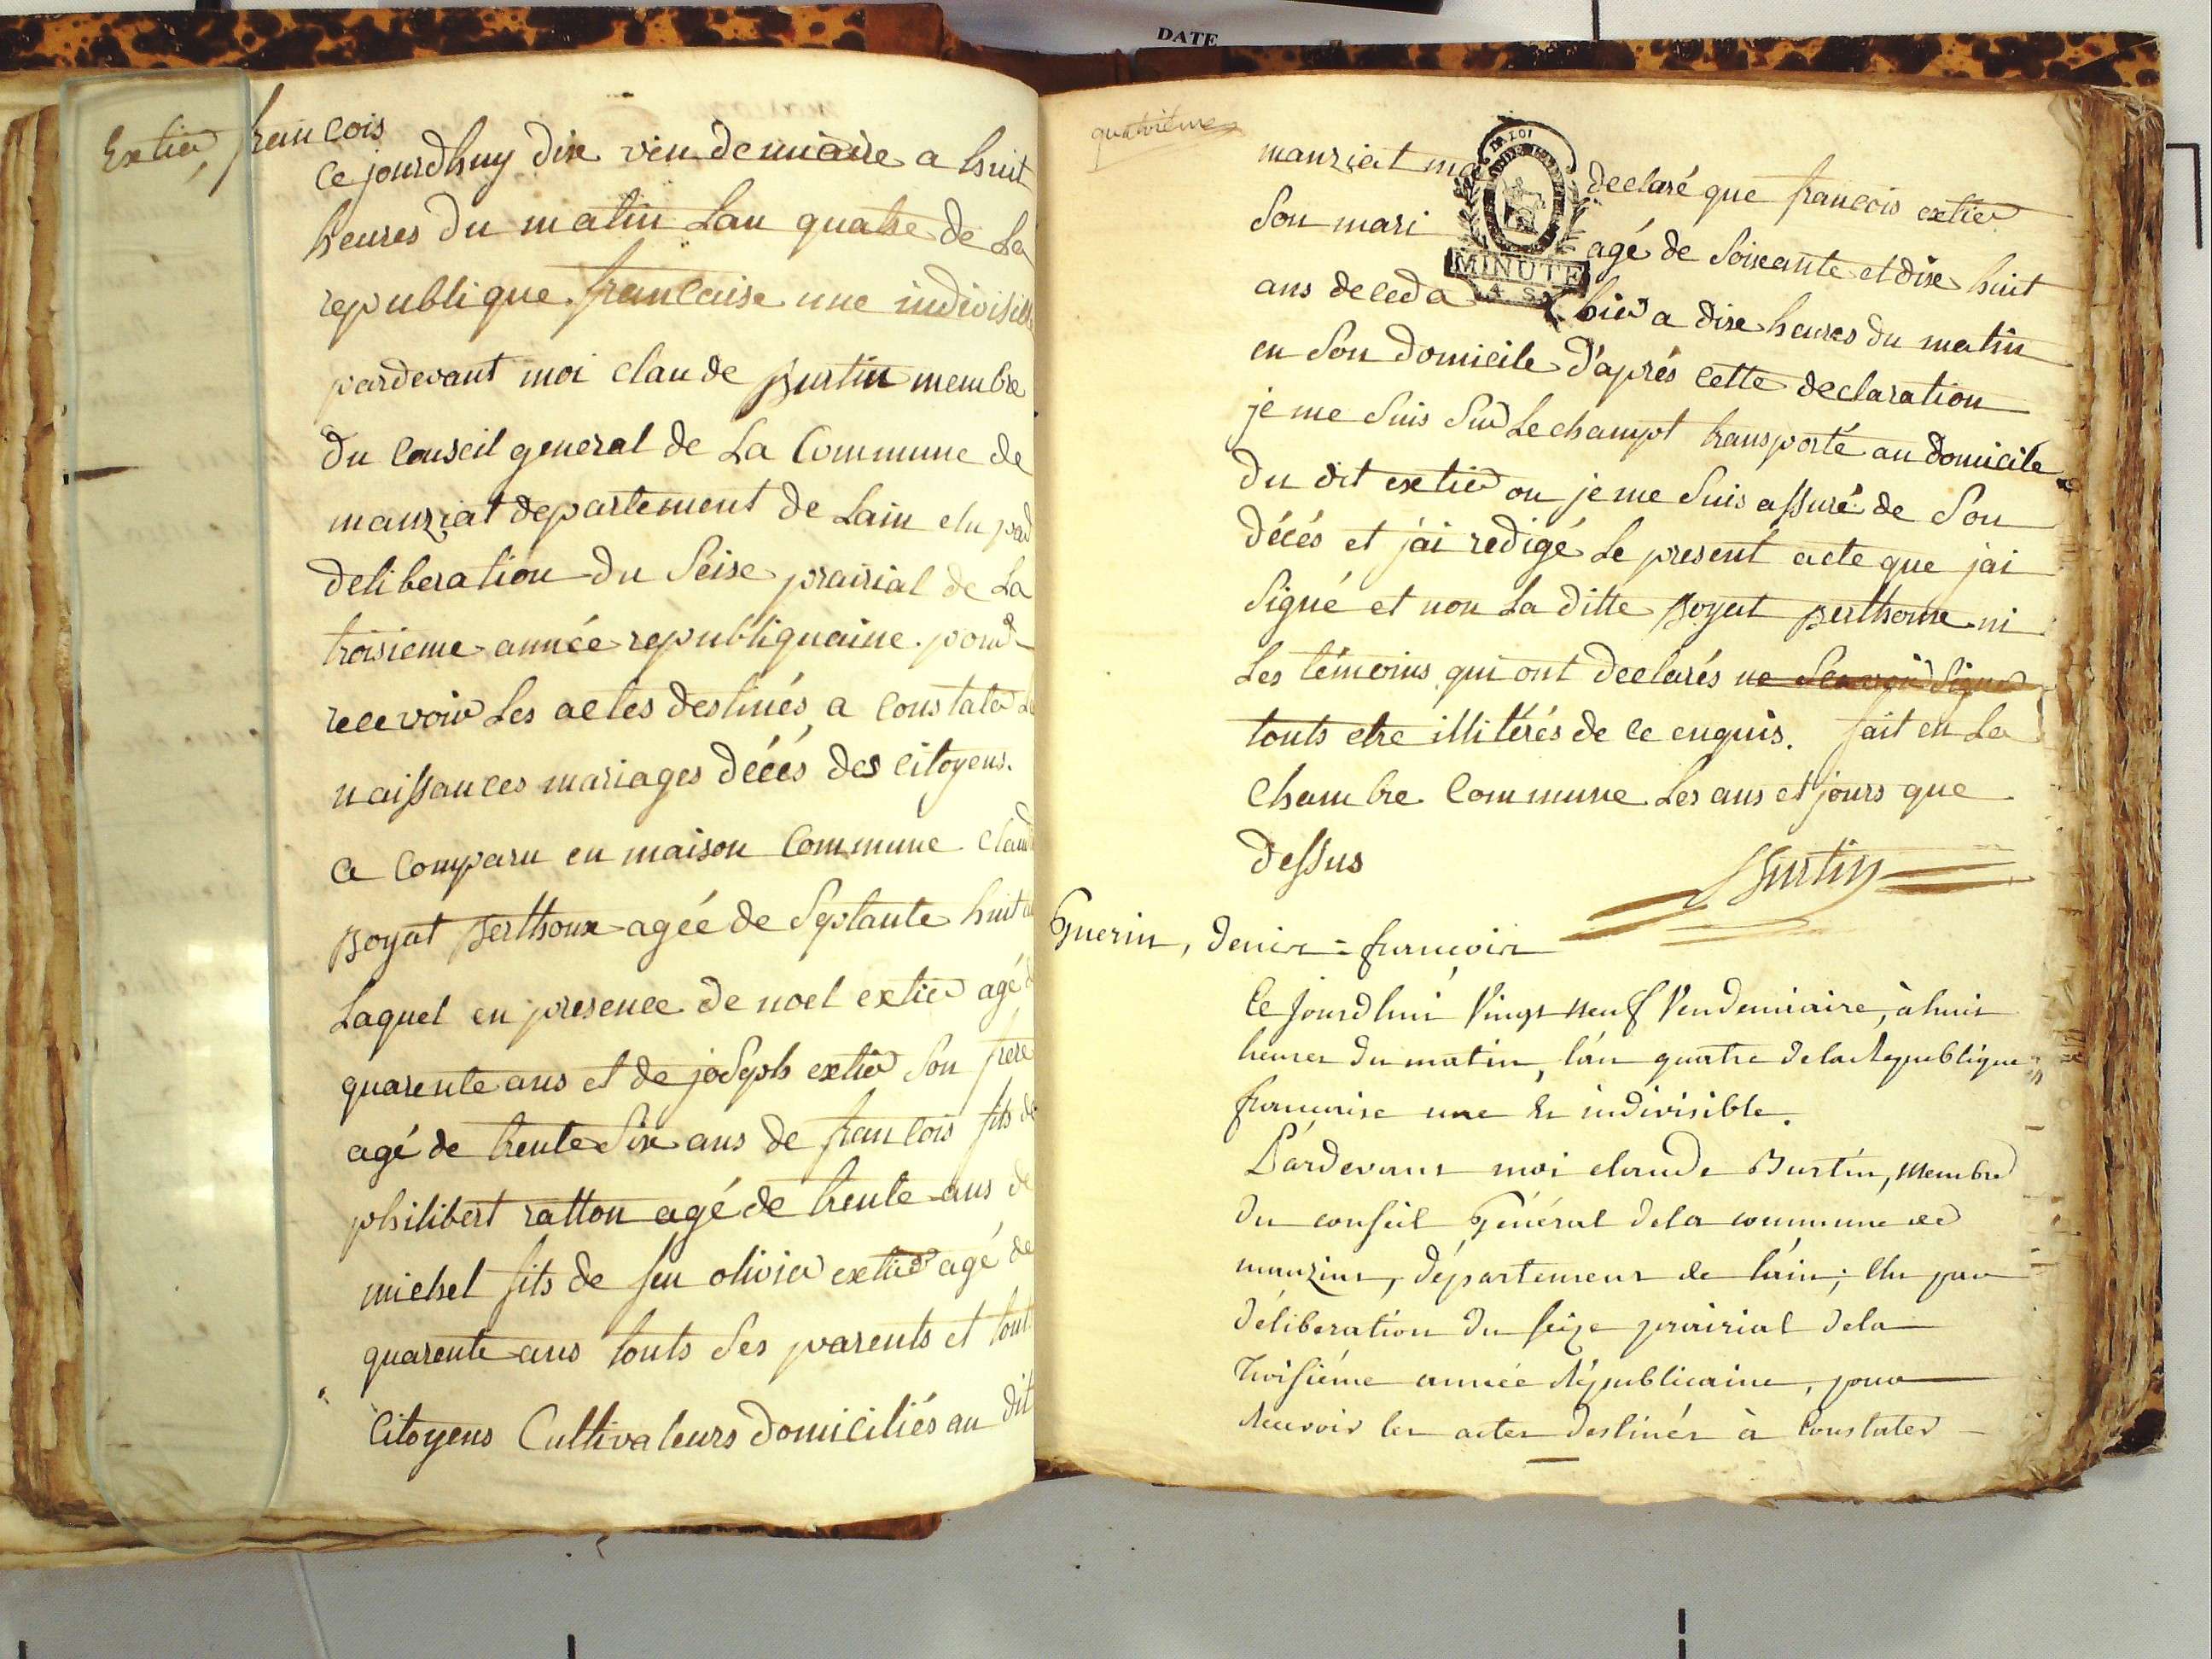 DATE
Extier, francois
Ce jourdhuy dix vendemiaire a huit
heures du matin Lan quatre de La
republique francaise une indivisible
pardevant moi claude Burtin membre
du Conseil general de La Commune de
manziat departement de Lain elu par
deliberation du Seise prairial de La
troisieme année republiquaine pour
recevoir Les actes destinés a constater Le
naissances mariages décés des Citoyens.
a comparu en maison Commune Claud
Boyat Berthoux agée de Septante huit
Laquel en presence de noel extier agé d
quarente ans et de joseph extier Son frere
agé de trente Six ans de francois fils de
philibert ratton agé de trente ans de
michel fils de feu olivier extier agé de
quarente ans touts Ses parents et tout
Citoyens Cultivateurs domiciliés au dit
quatriéme
manziat ma declaré que francois extier
Son mari agé de Soixante et dix huit
ans deceda hier a dix heures du matin
en Son domicile d'aprés cette declaration
je me Suis Sur Le champt transporté au domicile
du dit extier ou je me Suis assuré de Son
décés et j'ai redigé Le present acte que jai
Signé et non La ditte Boyat Berthoux ni
Les témoins qui ont declarés ne Scavoir Signer
touts etre illitérés de ce enquis. fait en La
Chambre Commune Les ans et jours que
dessus
Burtin
MINUTE
4 S
Guerin, denis = francois
Ce jourdhui Vingt neuf Vendemiaire, à huit
heures du matin, l'an quatre de la Republique
francaise une Et indivisible.
Pardevant moi claude Burtin, membre
du conseil Général de la commune de
manziat, département de l'ain; Elu par
déliberation du seize prairial de la
Troisiéme année Républicaine, pour
Recevoir les actes destinés à Constater